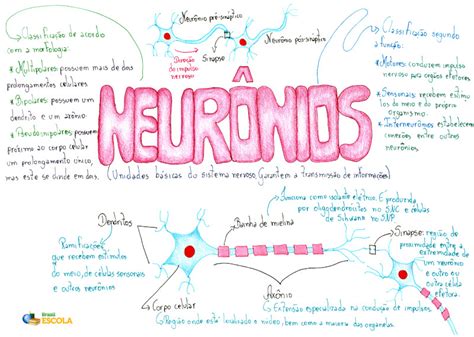 Neurônio pré-sináptico
Direção do impulso nervoso
Sinapse
Neurônio pós-sináptico
Classificação de acordo
com a morfologia:
* Multipolares possuem mais de dois
prolongamentos celulares
* Bipolares possuem um
dendrito e um axônio.
* Pseudounipolares possuem
próximo ao corpo celular
um prolongamento único,
mas este se divide em dois.
Classificação segundo
a função:
* Motores conduzem impulso
nervoso para órgãos efetores.
* Sensoriais recebem estímu
los do meio e do próprio
organismo.
* Interneurônios estabelecem
conexões entre outros
neurônios.
NEURÔNIOS
(Unidades básicas do sistema nervoso. Garantem a transmissão de informações)
Dendritos
Ramificações
que recebem estímulos
do meio, de células sensoriais
e outros neurônios
Bainha de mielina
Funciona como isolante elétrico. É produzida
por oligodendrócitos no SNC e células
de Schwann no SNP
Sinapse: região de
proximidade entre a
extremidade de
um neurônio
e outra ou
outra célula
Axônio
Extensão especializada na condução de impulsos.
Corpo celular
Região onde está localizado o núcleo, bem como a maioria das organelas.
Brasil
ESCOLA